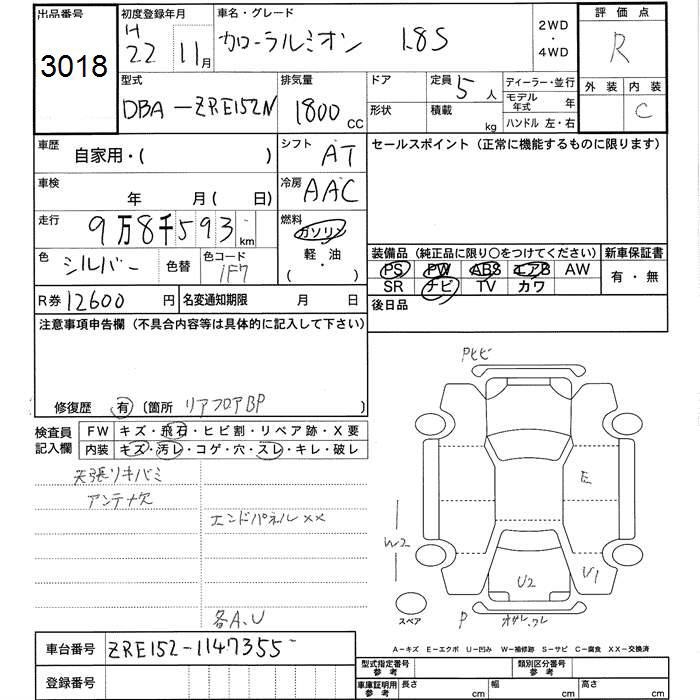 出品番号 初度登録年月 車名・グレード 2WD・4WD 評価点
3018 H 22 11月 カローラルミオン 1.8S R
型式 排気量 ドア 定員 5人 ディーラー・並行 外装 内装
DBA-ZRE152N 1800 CC 形状 積載 kg モデル年式 年 C
ハンドル 左・右
車歴 自家用・( ) シフト AT セールスポイント (正常に機能するものに限ります)
車検 年 月( 日) 冷房 AAC
走行 9万8千593km 燃料 ガソリン
色 シルバー 色替 色コード 1F7 軽・油 ( )
装備品 (純正品に限り○をつけてください) 新車保証書
PS PW ABS エアB AW 有・無
SR ナビ TV カワ
R券 12600 円 名変通知期限 月 日 後日品
注意事項申告欄 (不具合内容等は具体的に記入して下さい)
修復歴 有 〔箇所 リアフロアBP 〕
検査員記入欄 FW キズ・飛石・ヒビ割・リペア跡・X要
内装 キズ・汚レ・コゲ・穴・スレ・キレ・破レ
天張リキバミ
アンテナ欠
エンドパネルXX
各A、U
Pヒビ
E
W2
U2
U1
スペア
P
A-キズ E-エクボ U-凹み W-補修跡 S-サビ C-腐食 XX-交換済
車台番号 ZRE152-1147355
登録番号
型式指定番号 参考 類別区分番号 参考
車庫証明用 参考 長さ cm 幅 cm 高さ cm